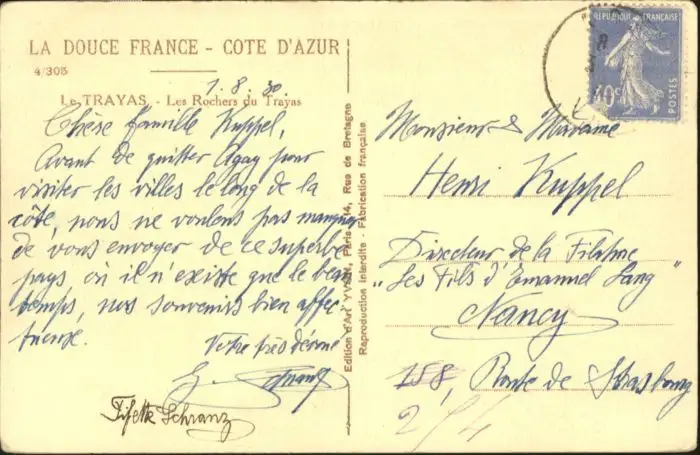 LA DOUCE FRANCE - COTE D'AZUR
4/305
1.8.30
Le TRAYAS - Les Rochers du Trayas
Chère famille Kuppel,
Avant de quitter Agay pour
visiter les villes le long de la
côte, nous ne voulons pas manquer
de vous envoyer de ce superbe
pays où il n'existe que le beau
temps, nos souvenirs bien affec-
tueux.
Votre très dévoué
Fifette Schranz
Edition d'Art YVON, Paris, 14, Rue de Bretagne
Reproduction interdite - Fabrication française
REPUBLIQUE FRANÇAISE
40c
POSTES
Monsieur & Madame
Henri Kuppel
Directeur de la Filature
"Les Fils d'Emanuel Lang"
Nancy
158, Route de Strasbourg
254